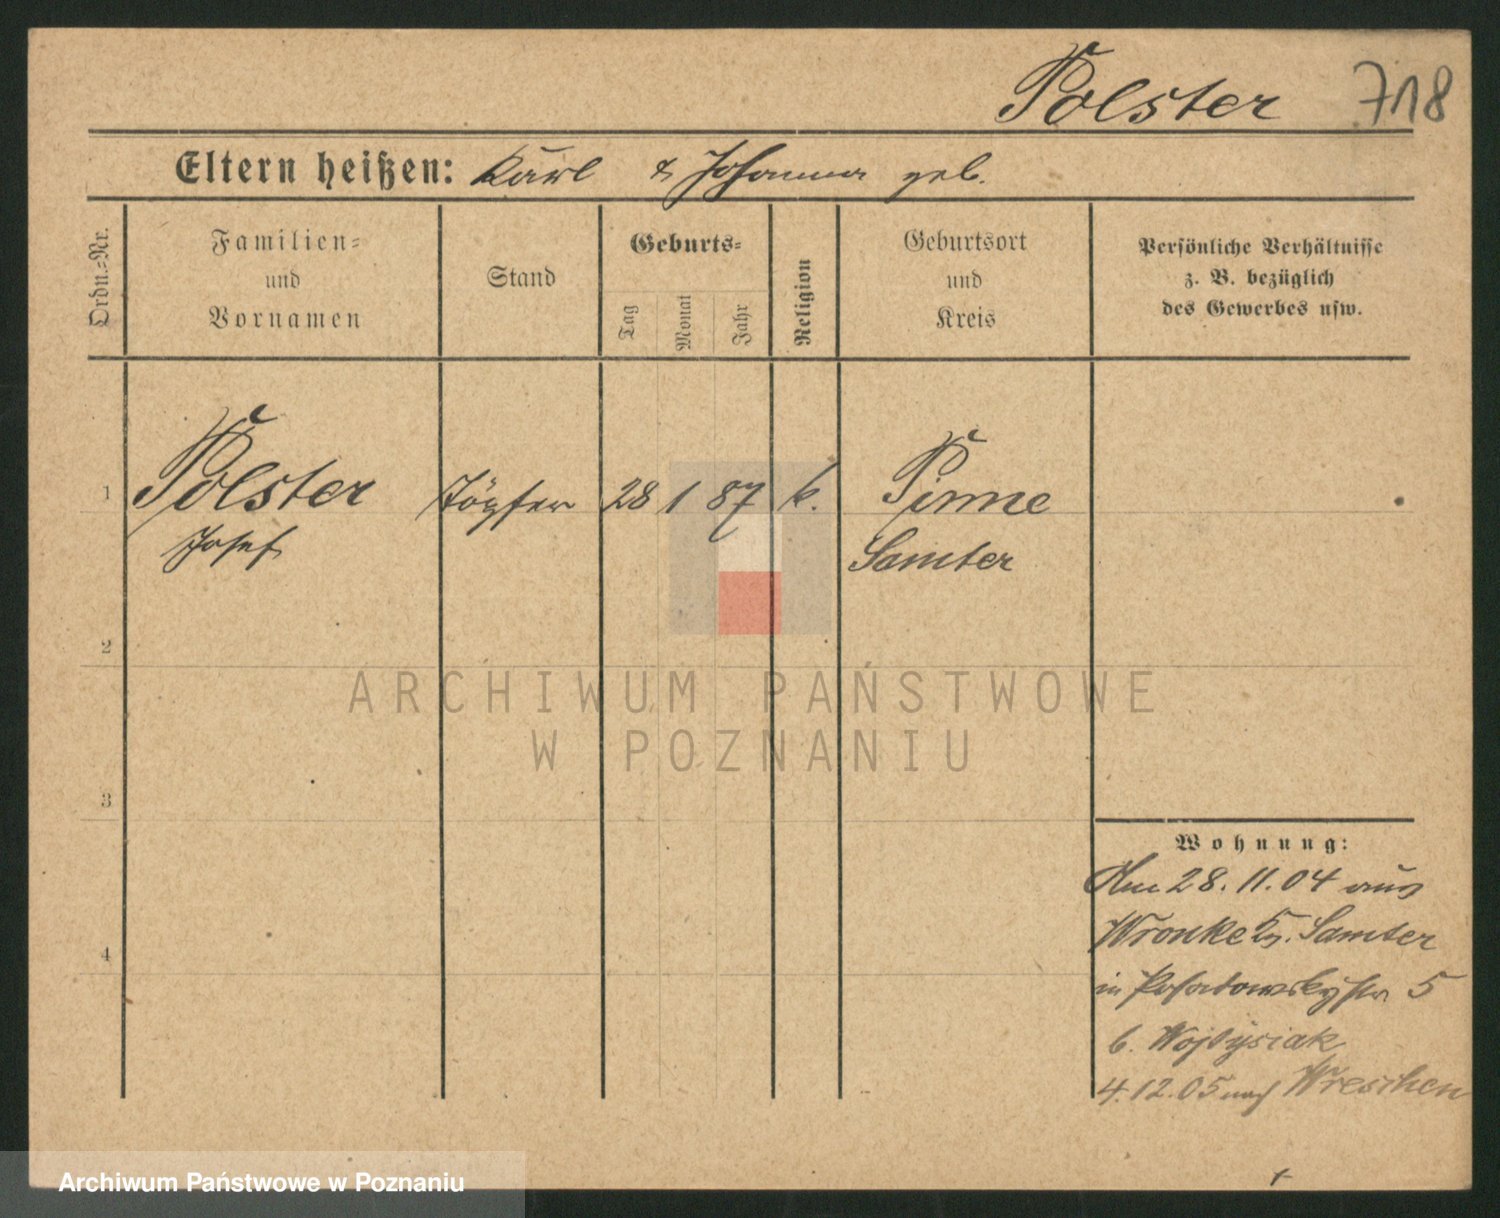 Polster 718
Eltern heißen: Karl & Johanna geb.
Ordn.=Nr.
Familien=
und
Vornamen
Stand
Geburts=
Tag
Monat
Jahr
Religion
Geburtsort
und
Kreis
Persönliche Verhältnisse
z. B. bezüglich
des Gewerbes usw.
1 Polster Töpfer 28 1 87 k. Pinne
Josef Samter
2
3
4
Wohnung:
Am 28. 11. 04 aus
Wronke Kr. Samter
in Posadowskystr 5
b. Wojtysiak
4.12.05 nach Wreschen
ARCHIWUM PAŃSTWOWE
W POZNANIU
Archiwum Państwowe w Poznaniu